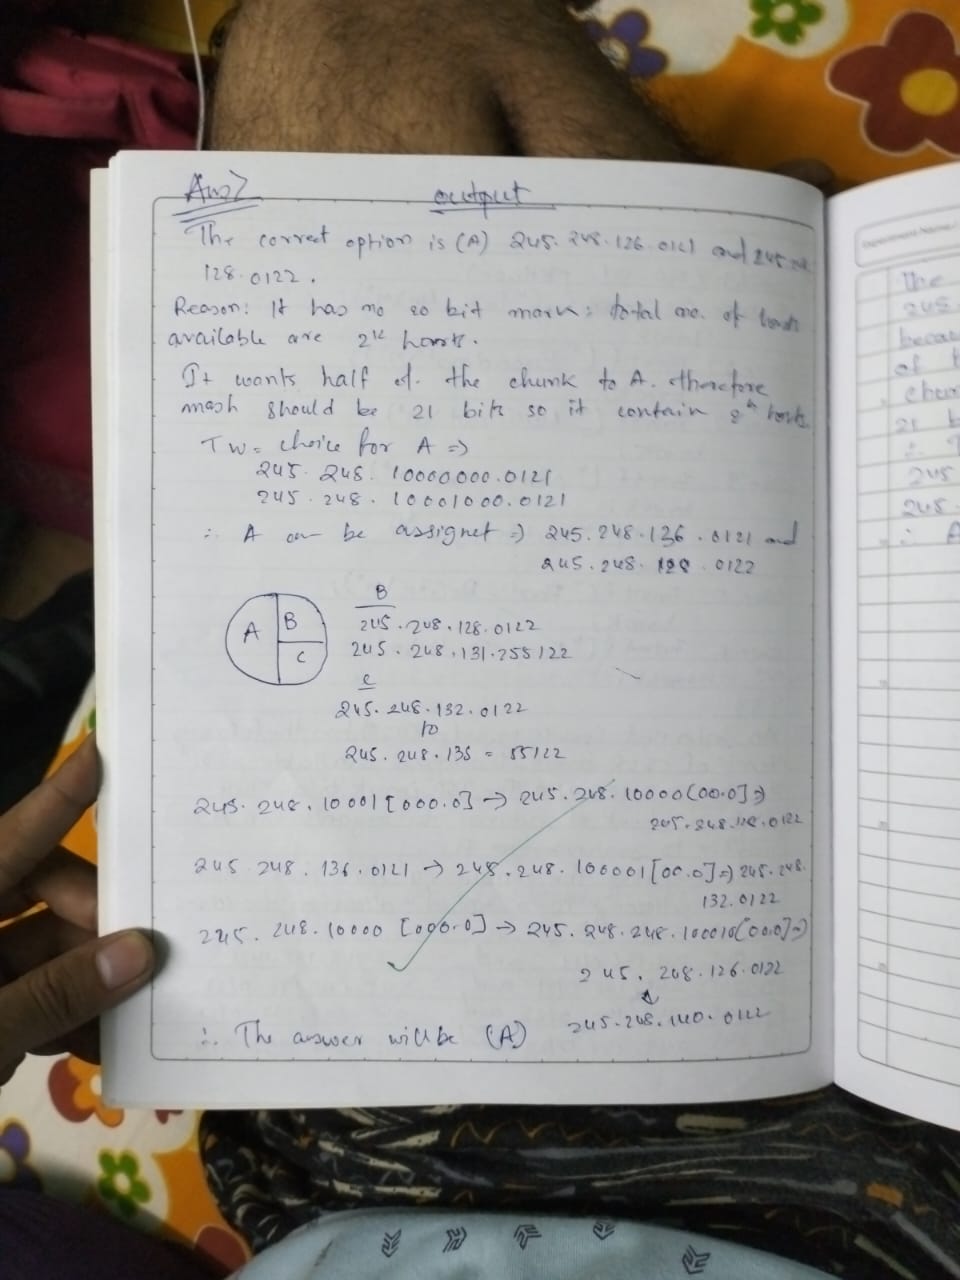 Ans7
output
The correct option is (A) 245.248.126.0121 and 245.248
128.0122.
Reason: It has no 20 bit mark: total no. of hosts
available are 2^12 hosts.
It wants half of the chunk to A. therefore
mash should be 21 bits so it contain hosts.
Two choice for A =>
245. 248. 10000000.0121
245. 248. 10001000.0121
∴ A can be assignet => 245.248.136.0121 and
245.248. 128 .0122
B
A B C
245.248.128.0122
245.248.131.255122
C
245.248.132.0122
to
245.248.135 = 55122
245.248.10001[000.0] → 245.248.10000[00.0] =>
245.248.128.0122
245.248.136.0121 → 245.248.100001[00.0] => 245.248.
132.0122
245.248.10000 [000.0] → 245.248.248.100010[00.0] =>
245.248.126.0122
245.248.140.0122
∴ The answer will be (A)
Experiment Name:
The
245
becau
of
chun
21 b
∴ T
245
245.
∴ A